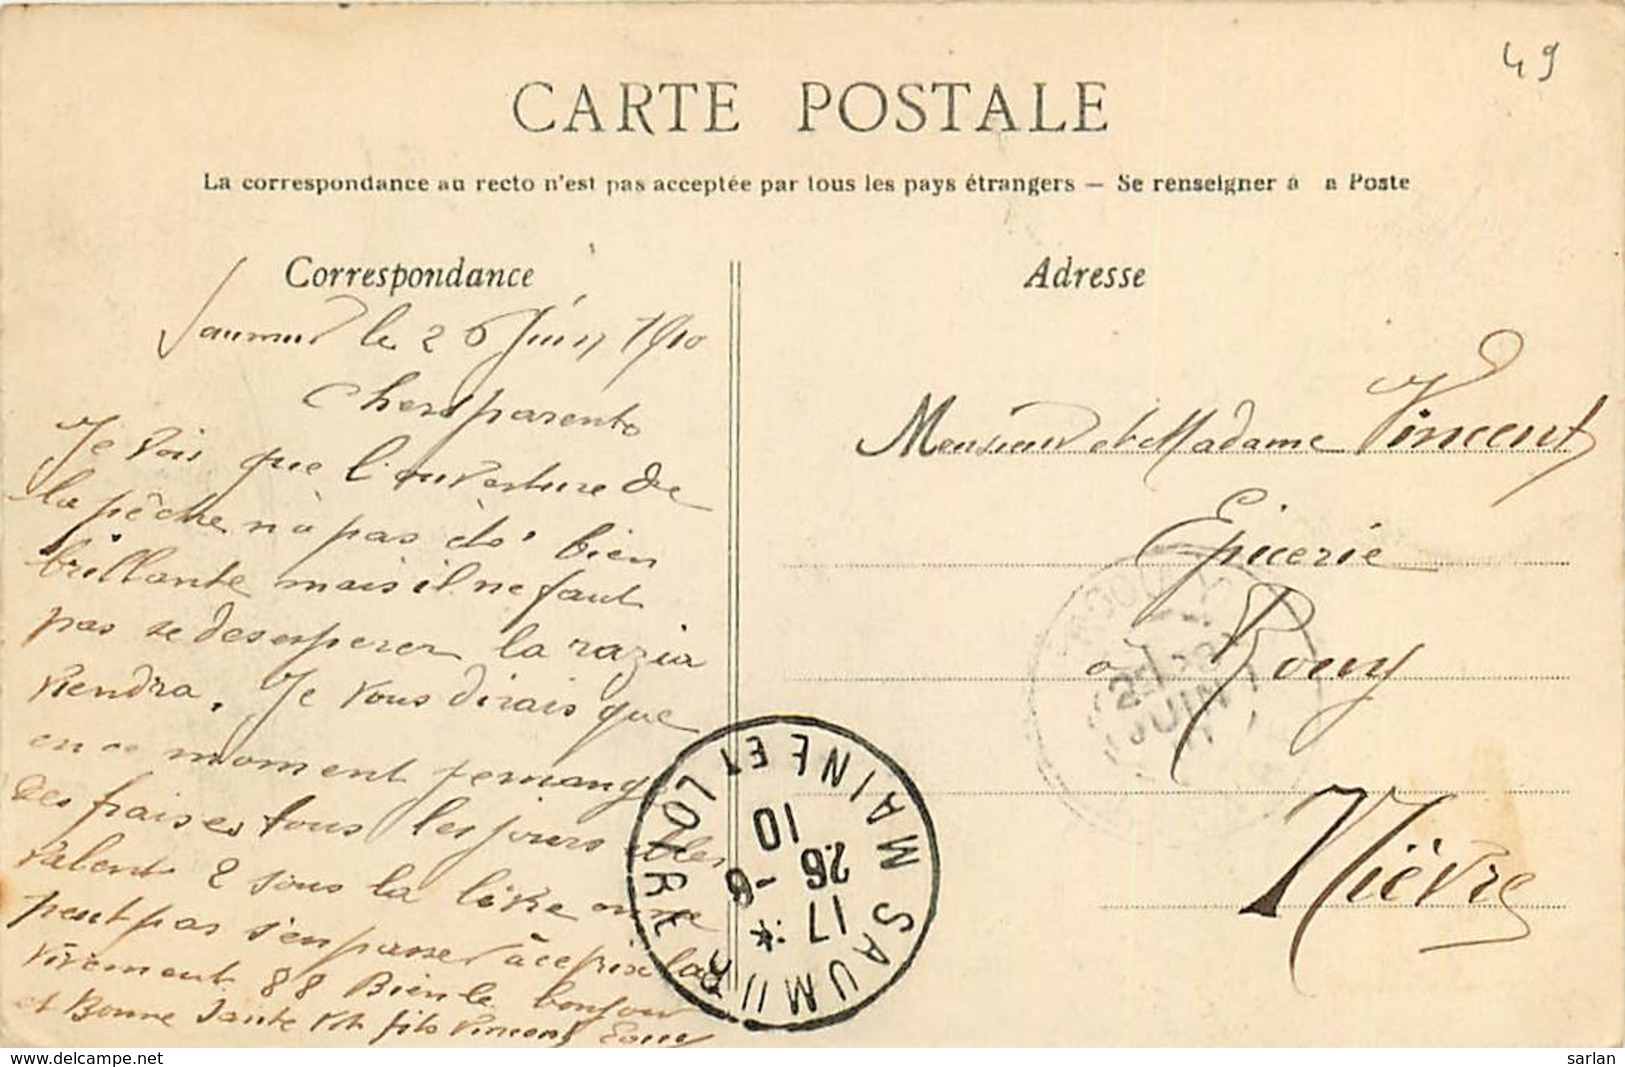 49
CARTE POSTALE
La correspondance au recto n'est pas acceptée par tous les pays étrangers — Se renseigner à a Poste
Correspondance
Saumur le 26 Juin 1910
Chers parents
Je vois que l'ouverture de
la pêche n'a pas été bien
brillante mais il ne faut
pas se desesperer la razia
viendra. Je vous dirais que
en ce moment je mange
des fraises tous les jours elles
valent 2 sous la livre on ne
peut pas s'en passer à ce prix la
vivement 88 Bien le bonjour
et Bonne Santé Vot fils Vincent
Adresse
Monsieur et Madame Vincent
Epicerie
à Rouy
Nièvre
SAUMUR MAINE ET LOIRE
17 *
26 -6
10
JUIN
sarlan